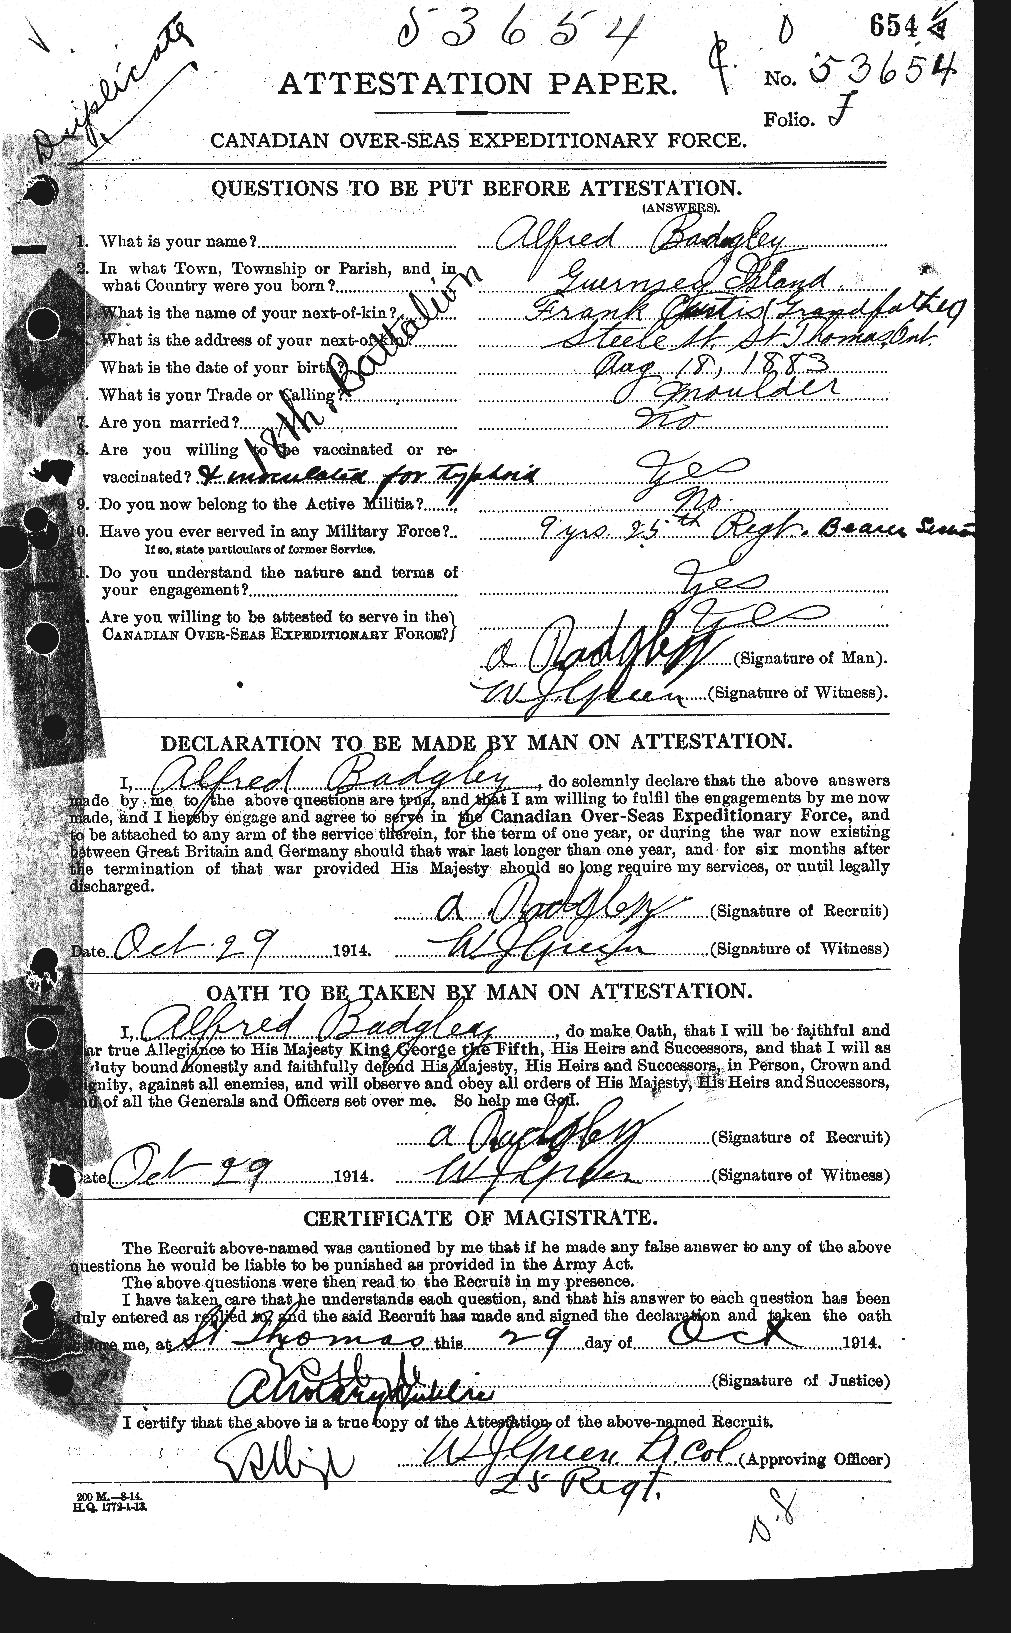 53654
654
Duplicate
ATTESTATION PAPER.
No. 53654
Folio. J
CANADIAN OVER-SEAS EXPEDITIONARY FORCE.
QUESTIONS TO BE PUT BEFORE ATTESTATION.
(ANSWERS).
1. What is your name? Alfred Badgley
2. In what Town, Township or Parish, and in
what Country were you born? Guernsey Island
What is the name of your next-of-kin? Frank Curtis (Grandfather)
What is the address of your next-of-kin? Steele St. St Thomas, Ont.
What is the date of your birth? Aug 18, 1883
What is your Trade or Calling? Moulder
7. Are you married? No
8. Are you willing to be vaccinated or re-
vaccinated? & inoculated for typhoid Yes
9. Do you now belong to the Active Militia? No.
10. Have you ever served in any Military Force? 9 yrs. 25th Regt. Bearer
If so, state particulars of former Service.
11. Do you understand the nature and terms of
your engagement? Yes
Are you willing to be attested to serve in the
CANADIAN OVER-SEAS EXPEDITIONARY FORCE? Yes
18th. Battalion
A Badgley (Signature of Man).
W J Green (Signature of Witness).
DECLARATION TO BE MADE BY MAN ON ATTESTATION.
I, Alfred Badgley, do solemnly declare that the above answers
made by me to the above questions are true, and that I am willing to fulfil the engagements by me now
made, and I hereby engage and agree to serve in the Canadian Over-Seas Expeditionary Force, and
to be attached to any arm of the service therein, for the term of one year, or during the war now existing
between Great Britain and Germany should that war last longer than one year, and for six months after
the termination of that war provided His Majesty should so long require my services, or until legally
discharged.
A Badgley (Signature of Recruit)
Date Oct. 29 1914. W J Green (Signature of Witness)
OATH TO BE TAKEN BY MAN ON ATTESTATION.
I, Alfred Badgley, do make Oath, that I will be faithful and
ar true Allegiance to His Majesty King George the Fifth, His Heirs and Successors, and that I will as
duty bound honestly and faithfully defend His Majesty, His Heirs and Successors, in Person, Crown and
ignity, against all enemies, and will observe and obey all orders of His Majesty, His Heirs and Successors,
and of all the Generals and Officers set over me. So help me God.
A Badgley (Signature of Recruit)
Date Oct 29 1914. W J Green (Signature of Witness)
CERTIFICATE OF MAGISTRATE.
The Recruit above-named was cautioned by me that if he made any false answer to any of the above
questions he would be liable to be punished as provided in the Army Act.
The above questions were then read to the Recruit in my presence.
I have taken care that he understands each question, and that his answer to each question has been
duly entered as replied to, and the said Recruit has made and signed the declaration and taken the oath
before me, at St. Thomas this 29 day of Oct 1914.
A Notary Public (Signature of Justice)
I certify that the above is a true copy of the Attestation of the above-named Recruit.
W J Green Lt. Col (Approving Officer)
25 Regt.
200 M.—8-14.
H.Q. 1772-1-13.